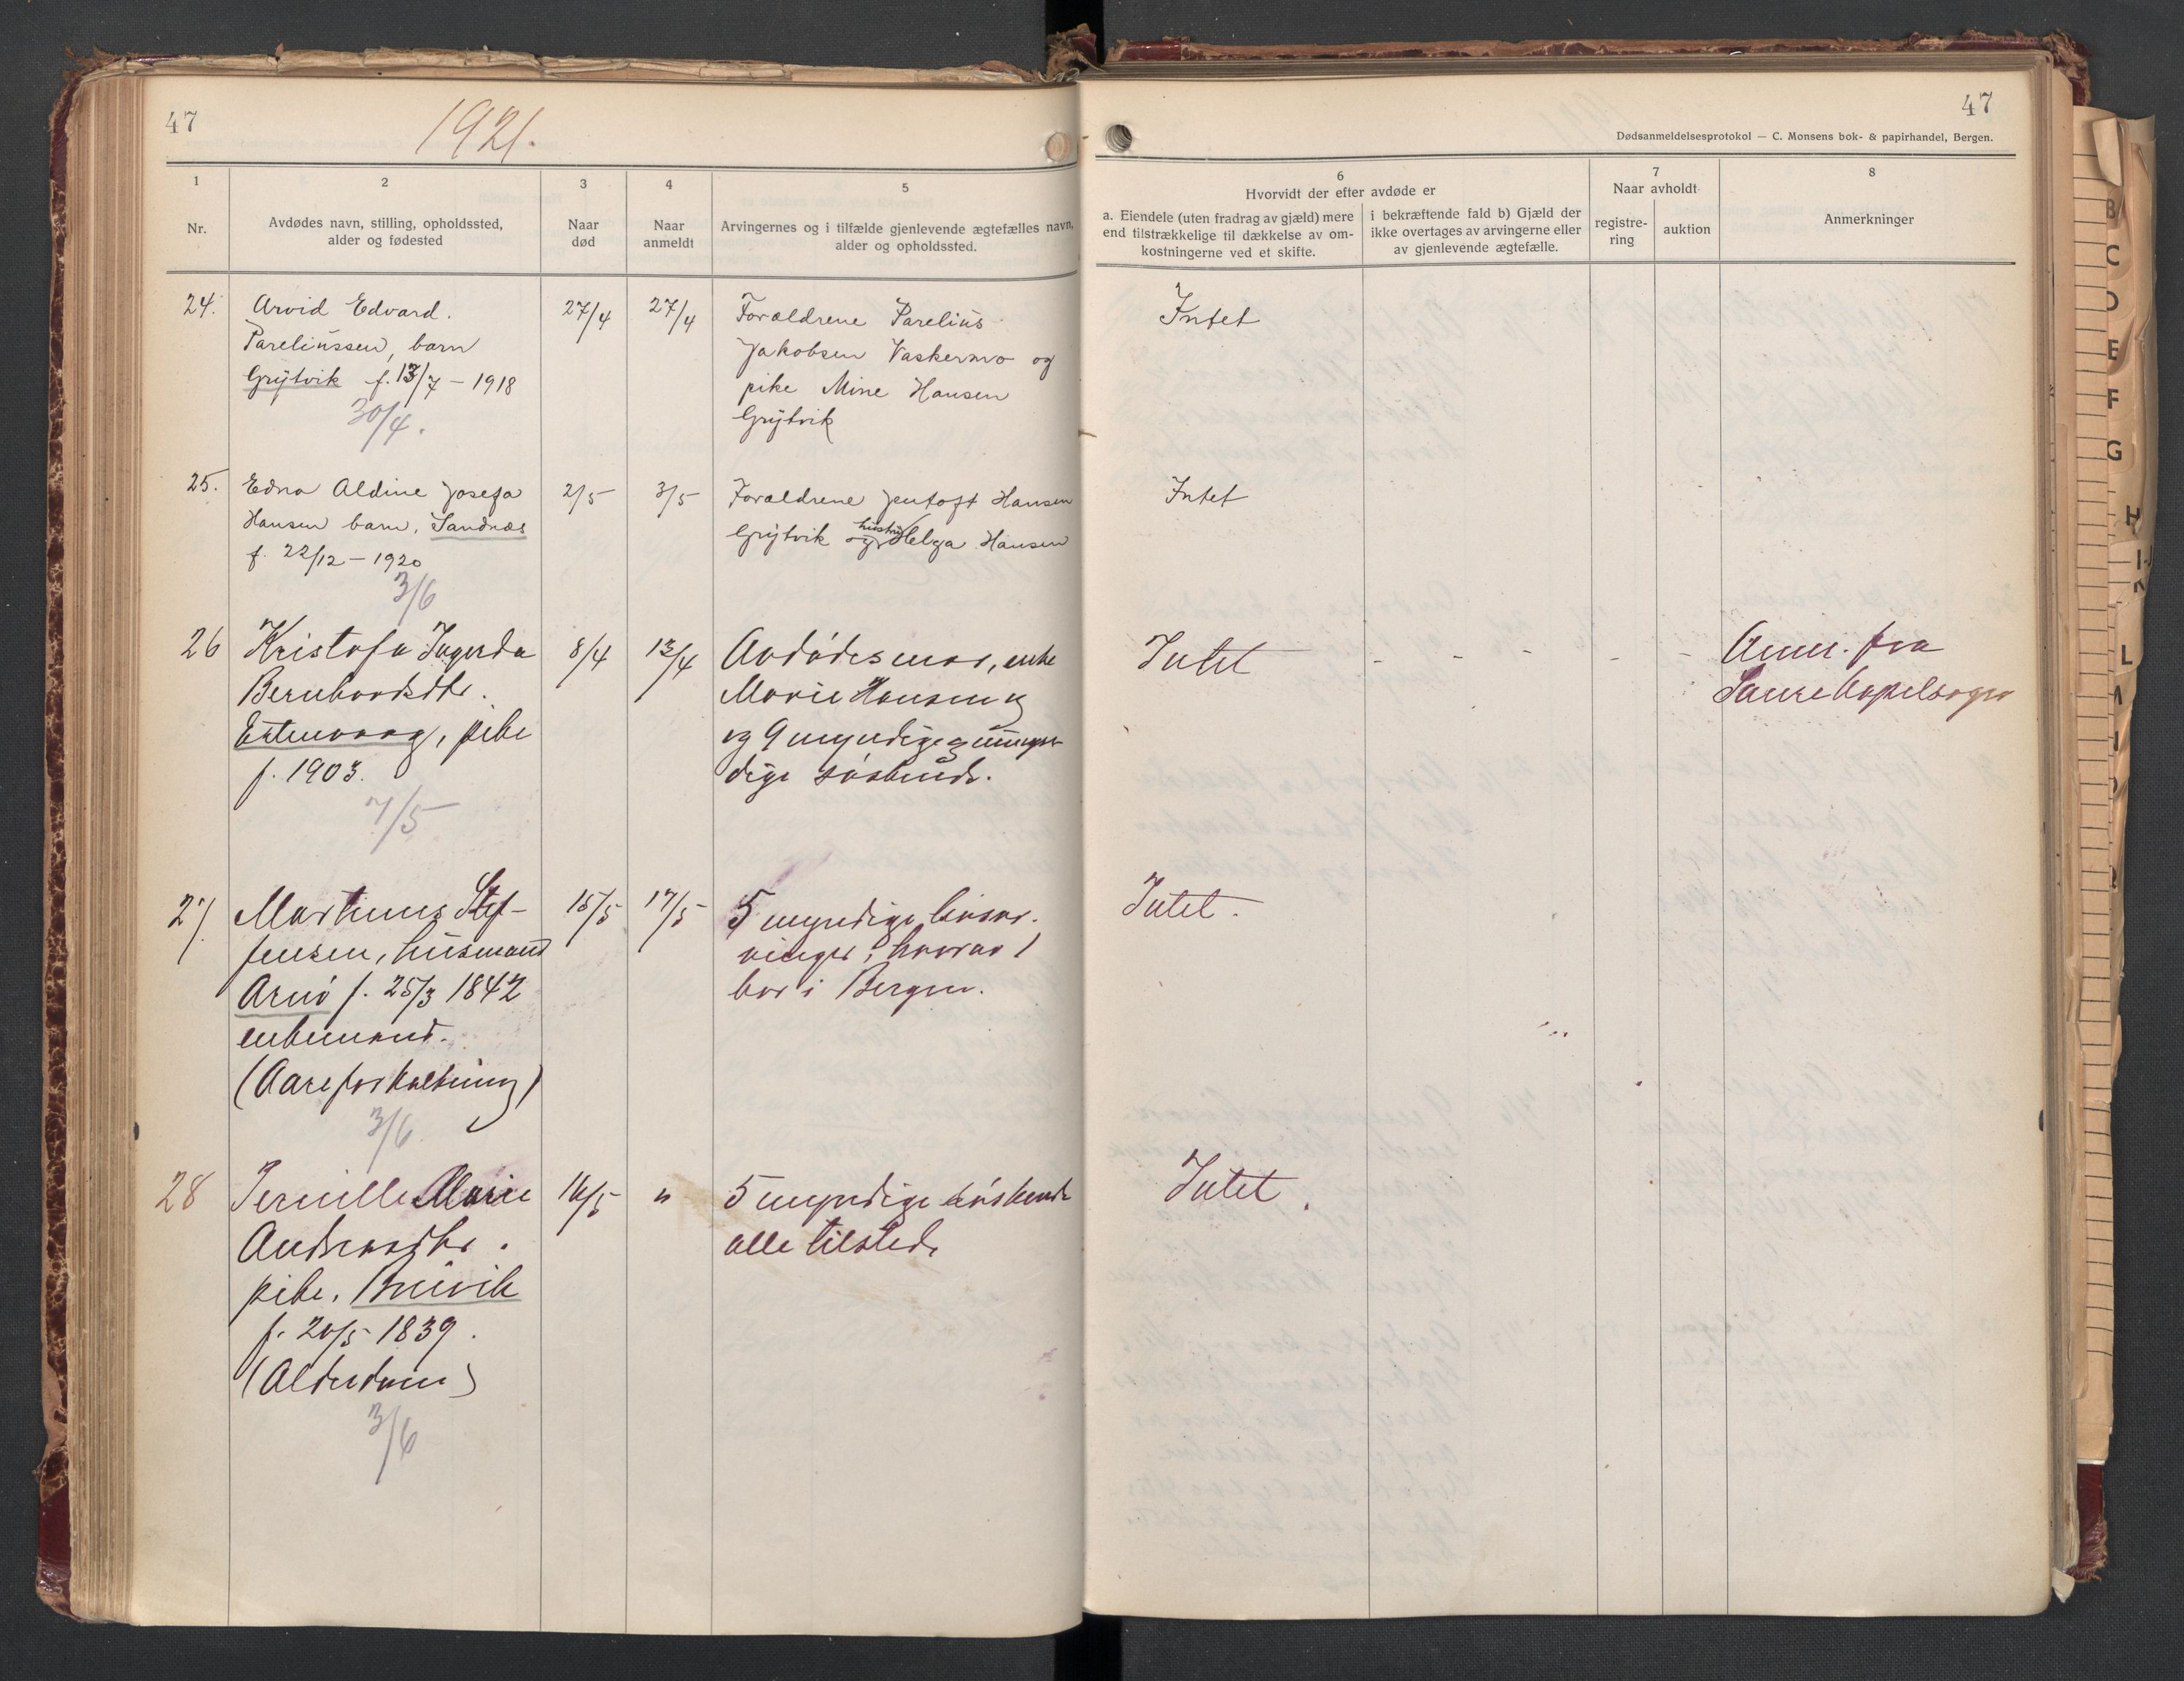 47
1921.
1
2
3
4
5
Nr.
Avdødes navn, stilling, opholdssted,
alder og fødested
Naar
død
Naar
anmeldt
Arvingernes og i tilfælde gjenlevende ægtefælles navn,
alder og opholdssted.
24.
Arvid Edvard.
Pareliussen, barn
Grytvik f. 13/7 - 1918
30/4.
27/4
27/4
Forældrene Parelius
Jakobsen Vaskermo og
pike Mine Hansen
Grytvik
25.
Edna Aldine Josefa
Hansen barn, Sandnæs
f. 22/12 - 1920
3/6
2/5
3/5
Forældrene Jentoft Hansen
hustru
Grytvik og Helga Hansen
26
Kristofa Ingerda
Bernhardsdtr.
, pike
f. 1903.
7/5
8/4
13/4
Avdødes mor, enke
Marie Hansen
og 9 myndige og umyn-
dige søskende.
27.
Martinus Stef-
fensen, husmand
Arnø f. 25/3 1842
enkemand.
(Aareforkalkning)
3/6
15/5
17/5
5 myndige livsar-
vinger, hvorav 1
bor i Bergen.
28
Pernille Marie
Andreasdtr.
pike,
f. 20/5 1839.
(Alderdom)
3/6
16/5
"
5 myndige søskende
alle tilstede
47
Dødsanmeldelsesprotokol — C. Monsens bok- & papirhandel, Bergen.
6
Hvorvidt der efter avdøde er
7
Naar avholdt
8
a. Eiendele (uten fradrag av gjæld) mere
end tilstrækkelige til dækkelse av om-
kostningerne ved et skifte.
i bekræftende fald b) Gjæld der
ikke overtages av arvingerne eller
av gjenlevende ægtefælle.
registre-
ring
auktion
Anmerkninger
Intet
Intet
Intet - - - - -
Anm. fra
Intet.
Intet.
B
C
D
E
F
G
H
I-J
K
L